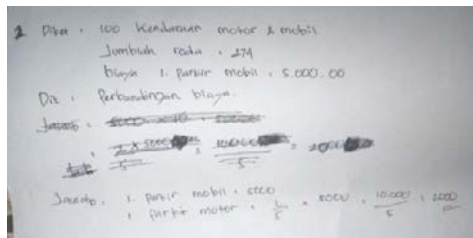 2 Diket : 100 Kendaraan motor & mobil
Jumlah roda : 274
biaya 1. parkir mobil : 5.000.00
Dit : Perbandingan biaya.
Jawab :
= 2 x 5000 = 10.000 = 2000
5 5
Jawab : 1. parkir mobil : 5000
1 parkir motor : = 5000 = 10.000 = 2000
5 5